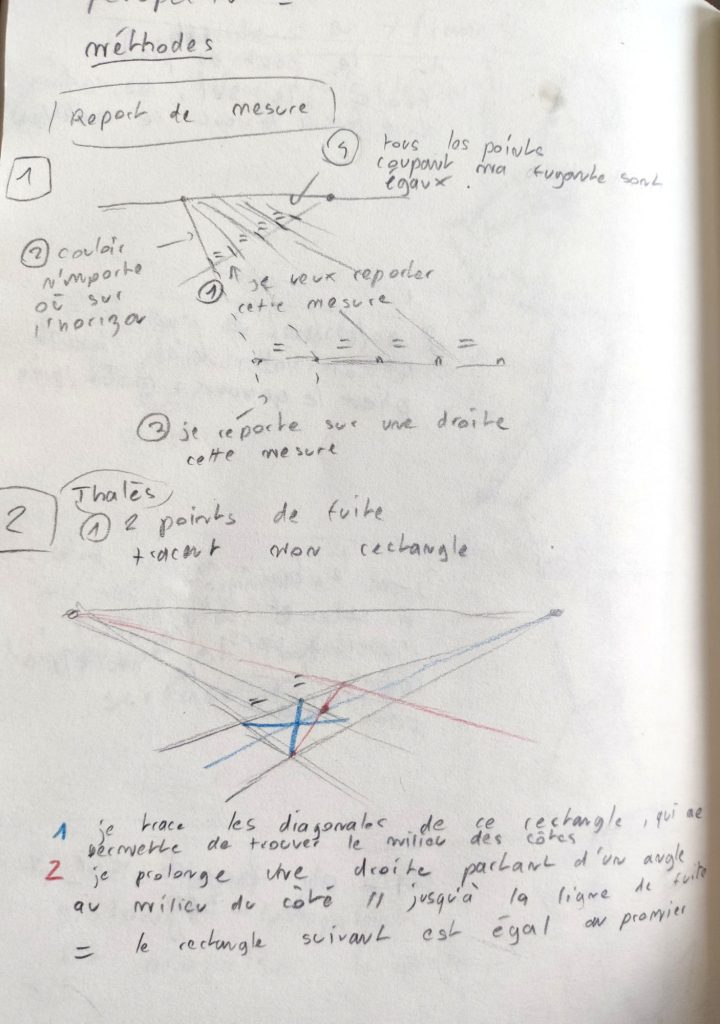 méthodes
Report de mesure
1
4 tous les points
coupant ma fuyante sont
égaux.
2 couloir
n'importe
où sur
l'horizon
1 je veux reporter
cette mesure
= = = =
= = = =
3 je reporte sur une droite
cette mesure
2
Thalès
1 2 points de fuite
tracent mon rectangle
= =
1 je trace les diagonales de ce rectangle, qui me
permette de trouver le milieu des côtés
2 je prolonge une droite partant d'un angle
au milieu du côté // jusqu'à la ligne de fuite
= le rectangle suivant est égal au premier